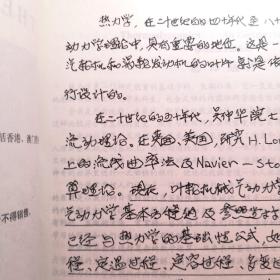 热力学，在二十世纪的四十年代至八十
动力学理论中，具有重要的地位。这是一
汽轮机和涡轮发动机的叶片都是依
行设计的。
在二十世纪的四十年代，吴仲华院士
流动理论。在英国、美国，研究 H. Lor
上的流线曲率法及 Navier-sto
算理论。现代，叶轮机械气动力学
气动力学基本方程组及
已经与热力学的基础性公式，如
程、定温过程、定容过程、多变过
活香港、澳门
不得销售，